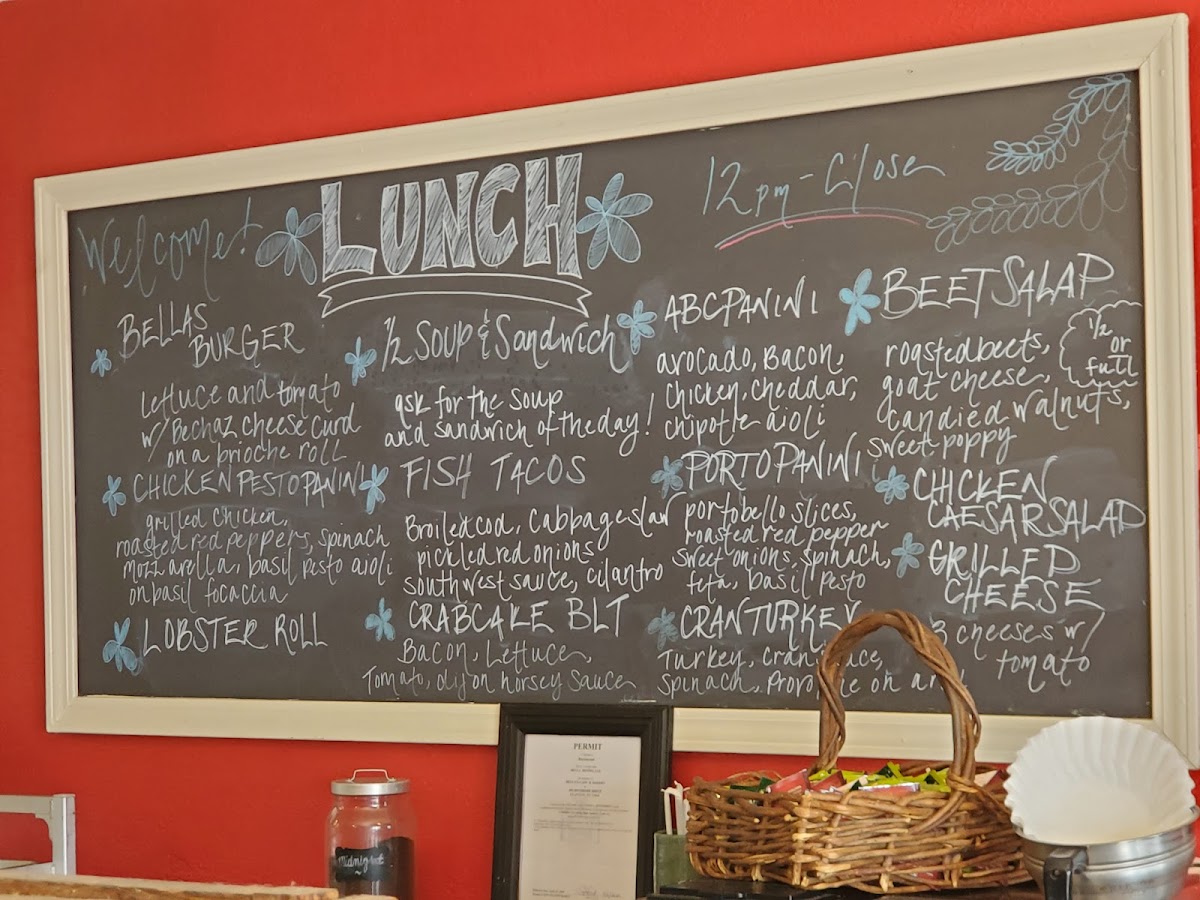 Welcome!
LUNCH
12pm - Close
BELLAS
BURGER
lettuce and tomato
w/ Bechaz cheese curd
on a brioche roll
CHICKEN PESTO PANINI
grilled chicken,
roasted red peppers, spinach
mozzarella, basil pesto aioli
on basil focaccia
LOBSTER ROLL
1/2 SOUP & Sandwich
ask for the soup
and sandwich of the day!
FISH TACOS
Broiled cod, Cabbage slaw
pickled red onions
southwest sauce, cilantro
CRABCAKE BLT
Bacon, Lettuce,
Tomato, dijon horsey sauce
ABC PANINI
avocado, Bacon,
Chicken, Cheddar,
chipotle aioli
PORTO PANINI
portobello slices,
roasted red pepper
sweet onions, spinach,
feta, basil pesto
CRANTURKEY
Turkey, cran
spinach, on
BEET SALAD
roasted beets,
goat cheese,
candied walnuts,
sweet poppy
1/2
or
full
CHICKEN
CAESAR SALAD
GRILLED
CHEESE
3 cheeses w/
tomato
PERMIT
Midnight